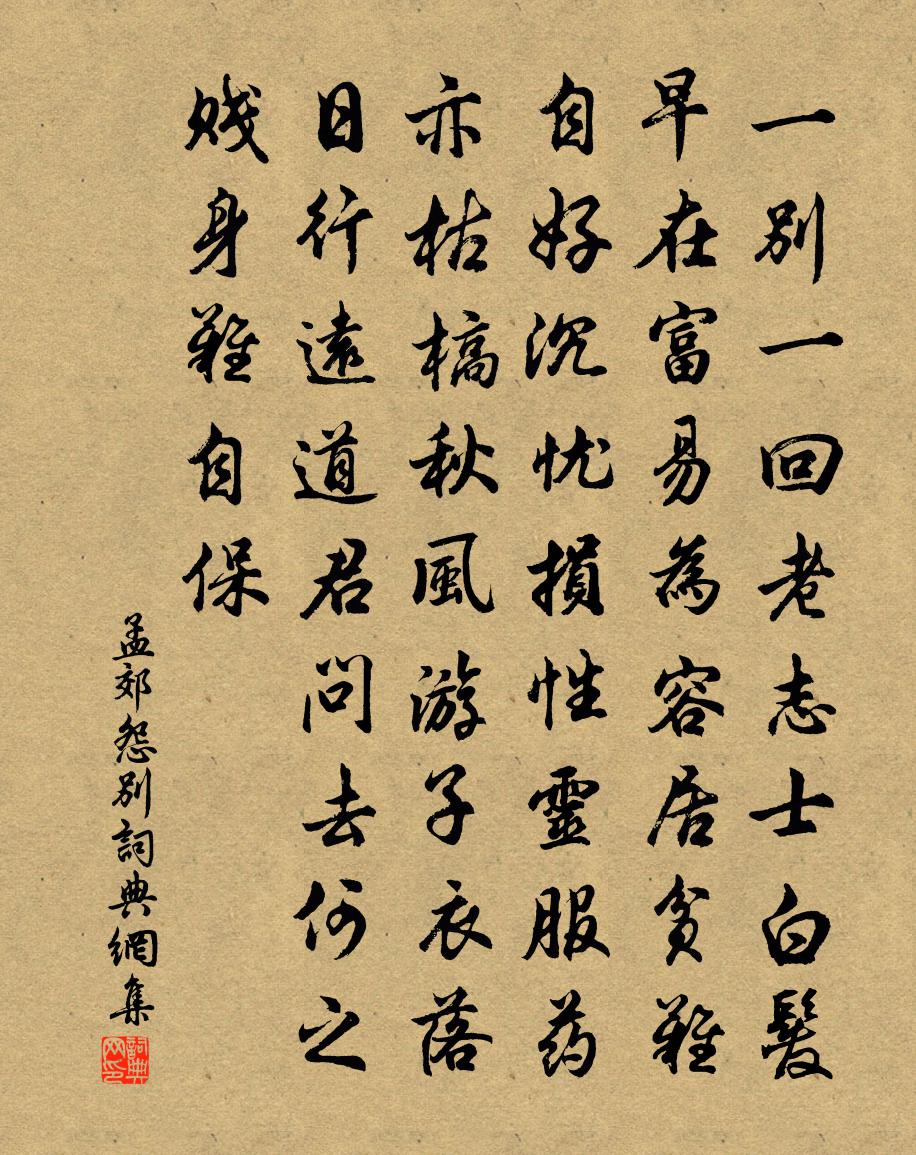 一别一回老志士白髮
早在富易為容居貧難
自好沉忧損性靈服药
亦枯槁秋風游子衣落
日行遠道君問去何之
賎身難自保
孟郊怨别詞典網集
詞典网印